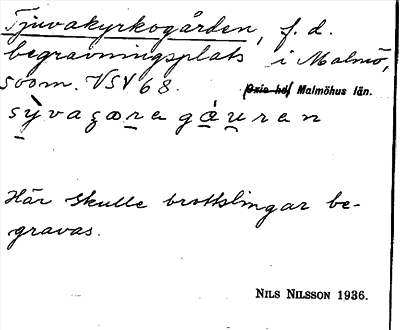 Tjuvakyrkogården, f. d.
begravningsplats i Malmö,
500m. VSV 68. Oxie hd Malmöhus län.
sỳvagæra gáuran
Här skulle brottslingar be-
gravas.
NILS NILSSON 1936.